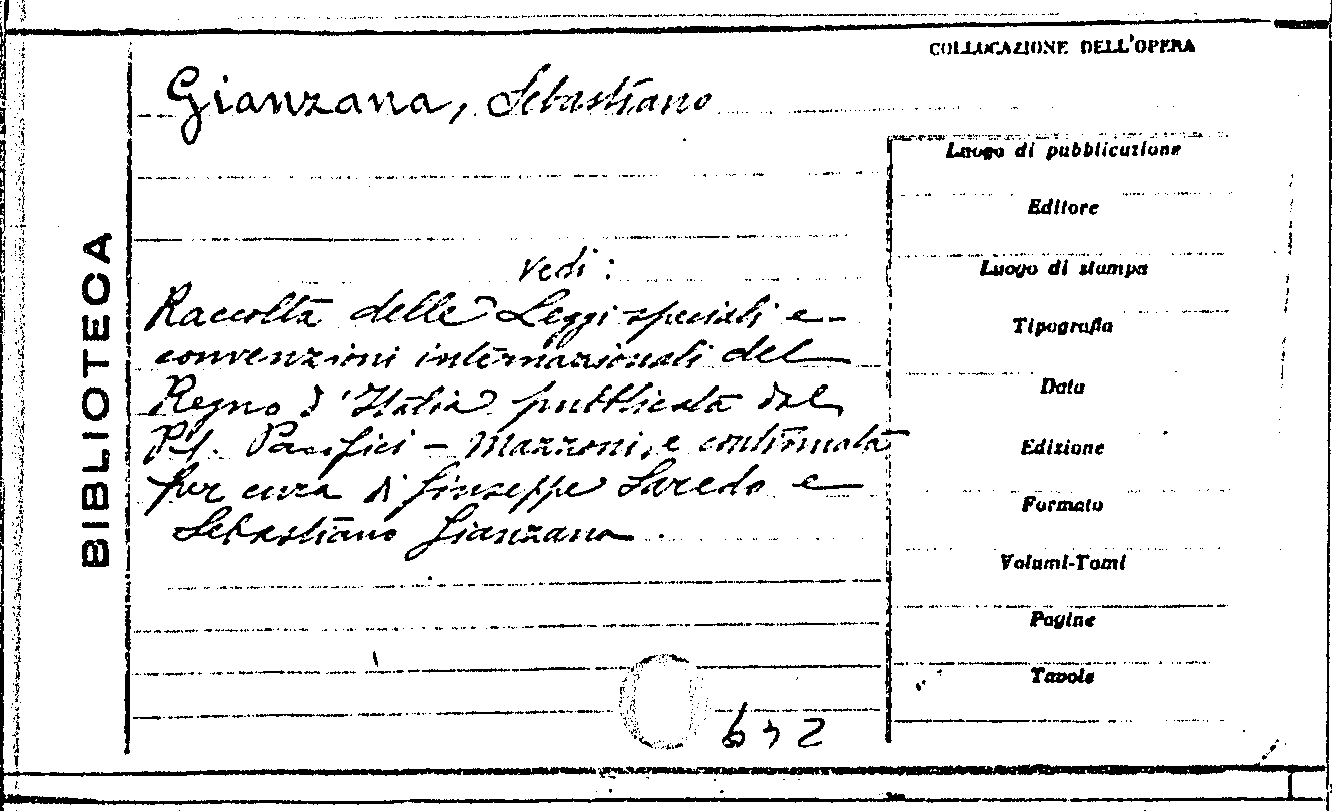 COLLOCAZIONE DELL'OPERA
Gianzana, Sebastiano
vedi:
Raccolta delle Leggi speciali e
convenzioni internazionali del
Regno d'Italia pubblicata dal
Pacifici-Mazzoni, e continuata
per cura di Giuseppe Saredo e
Sebastiano Gianzana.
BIBLIOTECA
Luogo di pubblicazione
Editore
Luogo di stampa
Tipografia
Data
Edizione
Formato
Volumi-Tomi
Pagine
Tavole